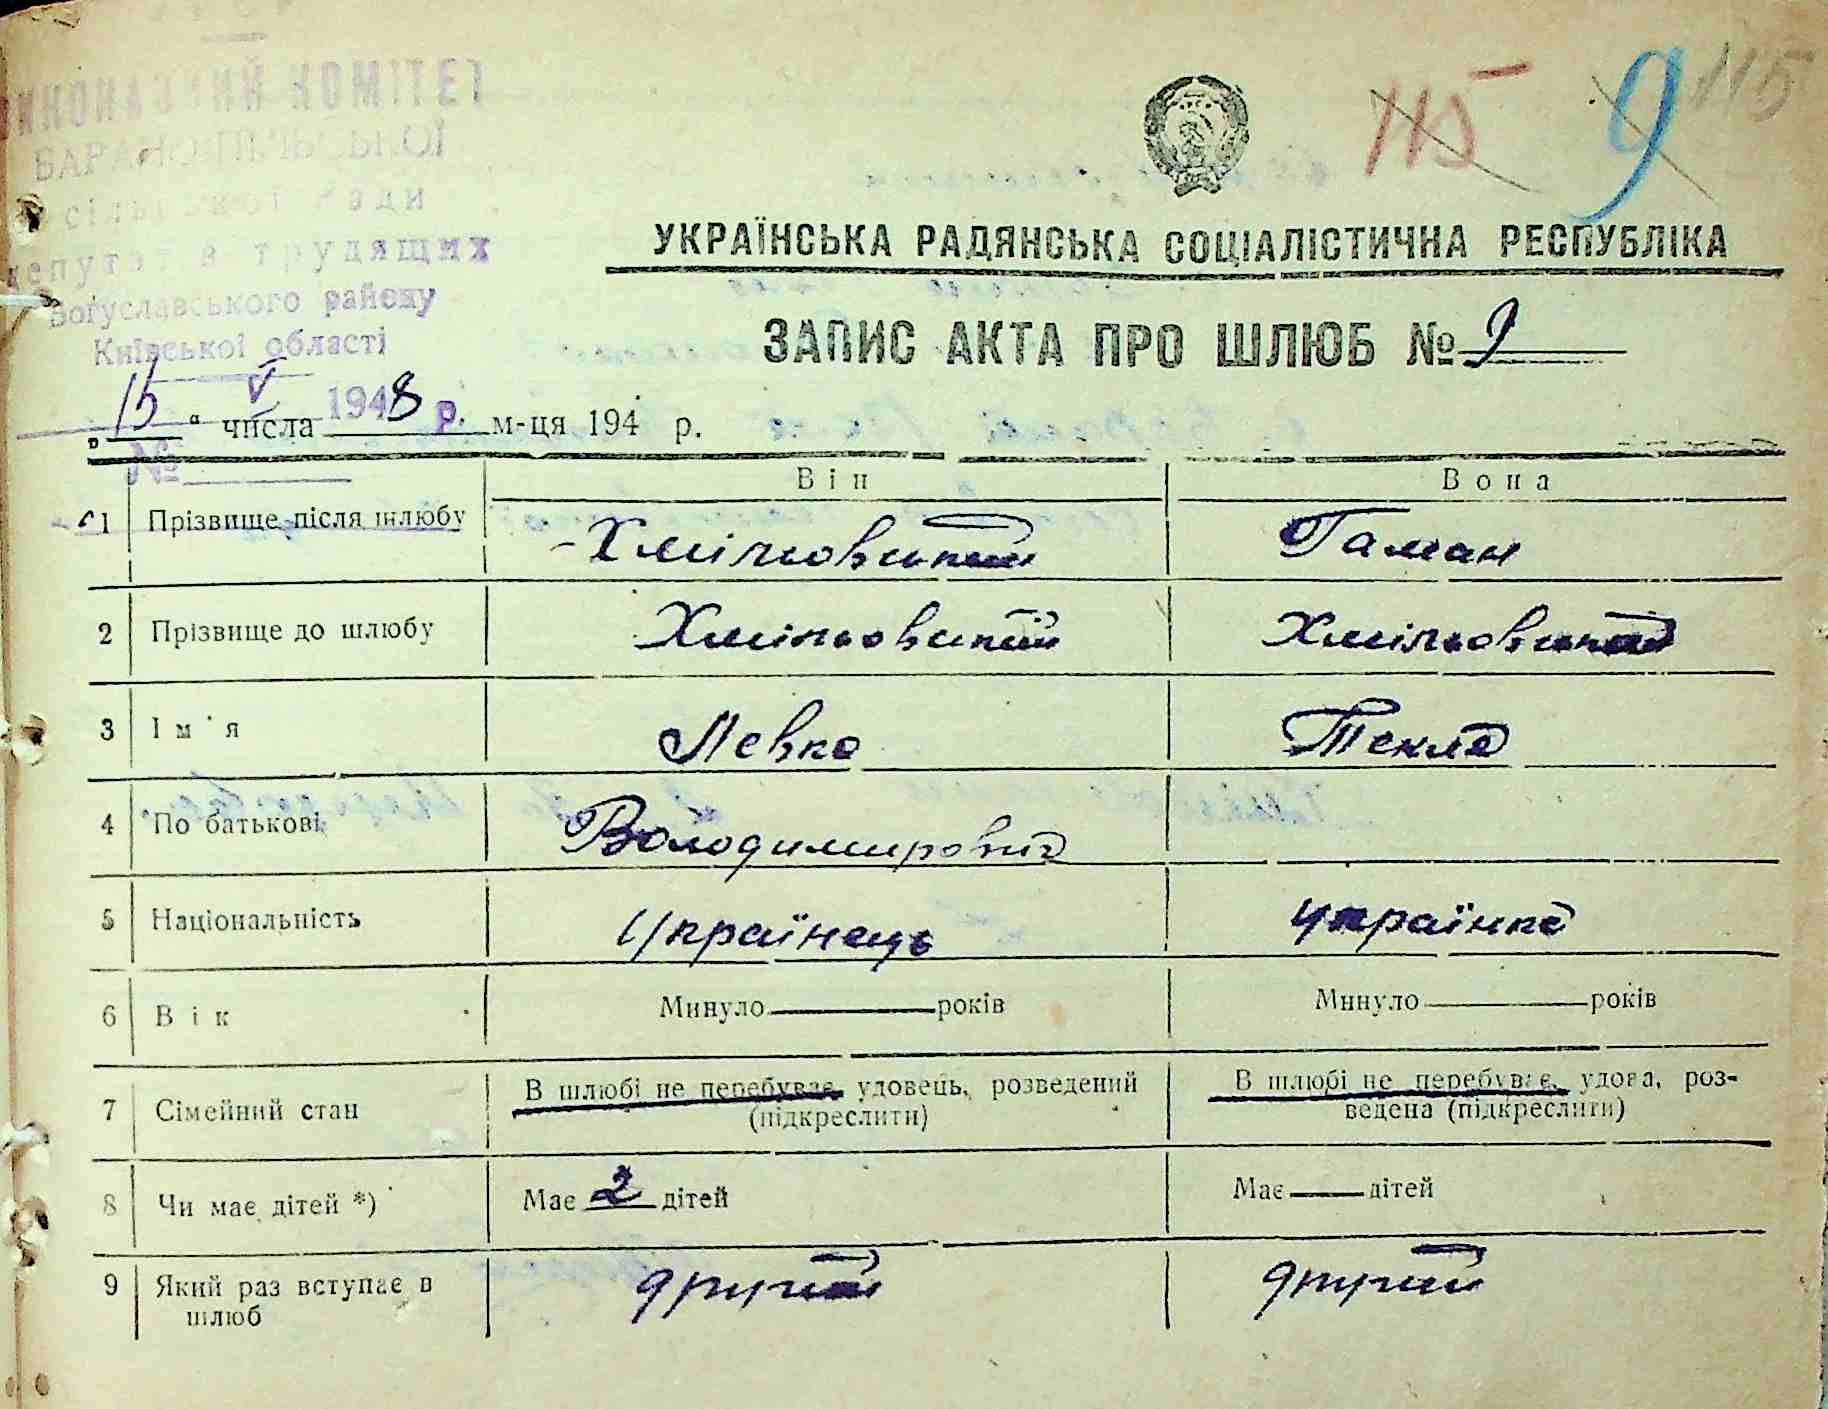 КОМІТЕТ
Ради
трудящих
Богуславського району
Київської області
15 V 1948 р.
№
115 9 115
УКРАЇНСЬКА РАДЯНСЬКА СОЦІАЛІСТИЧНА РЕСПУБЛІКА
ЗАПИС АКТА ПРО ШЛЮБ № 9
„ “ числа м-ця 194 р.
Він Вона
1 Прізвище після шлюбу Хмільовський Гаман
2 Прізвище до шлюбу Хмільовський Хмільовський
3 Ім'я Левко Текля
4 По батькові Володимирович
5 Національність Українець українка
6 Вік Минуло років Минуло років
7 Сімейний стан В шлюбі не перебуває, удовець, розведений (підкреслити) В шлюбі не перебуває, удова, роз-
ведена (підкреслити)
8 Чи має дітей *) Має 2 дітей Має — дітей
9 Який раз вступає в другий другий
шлюб